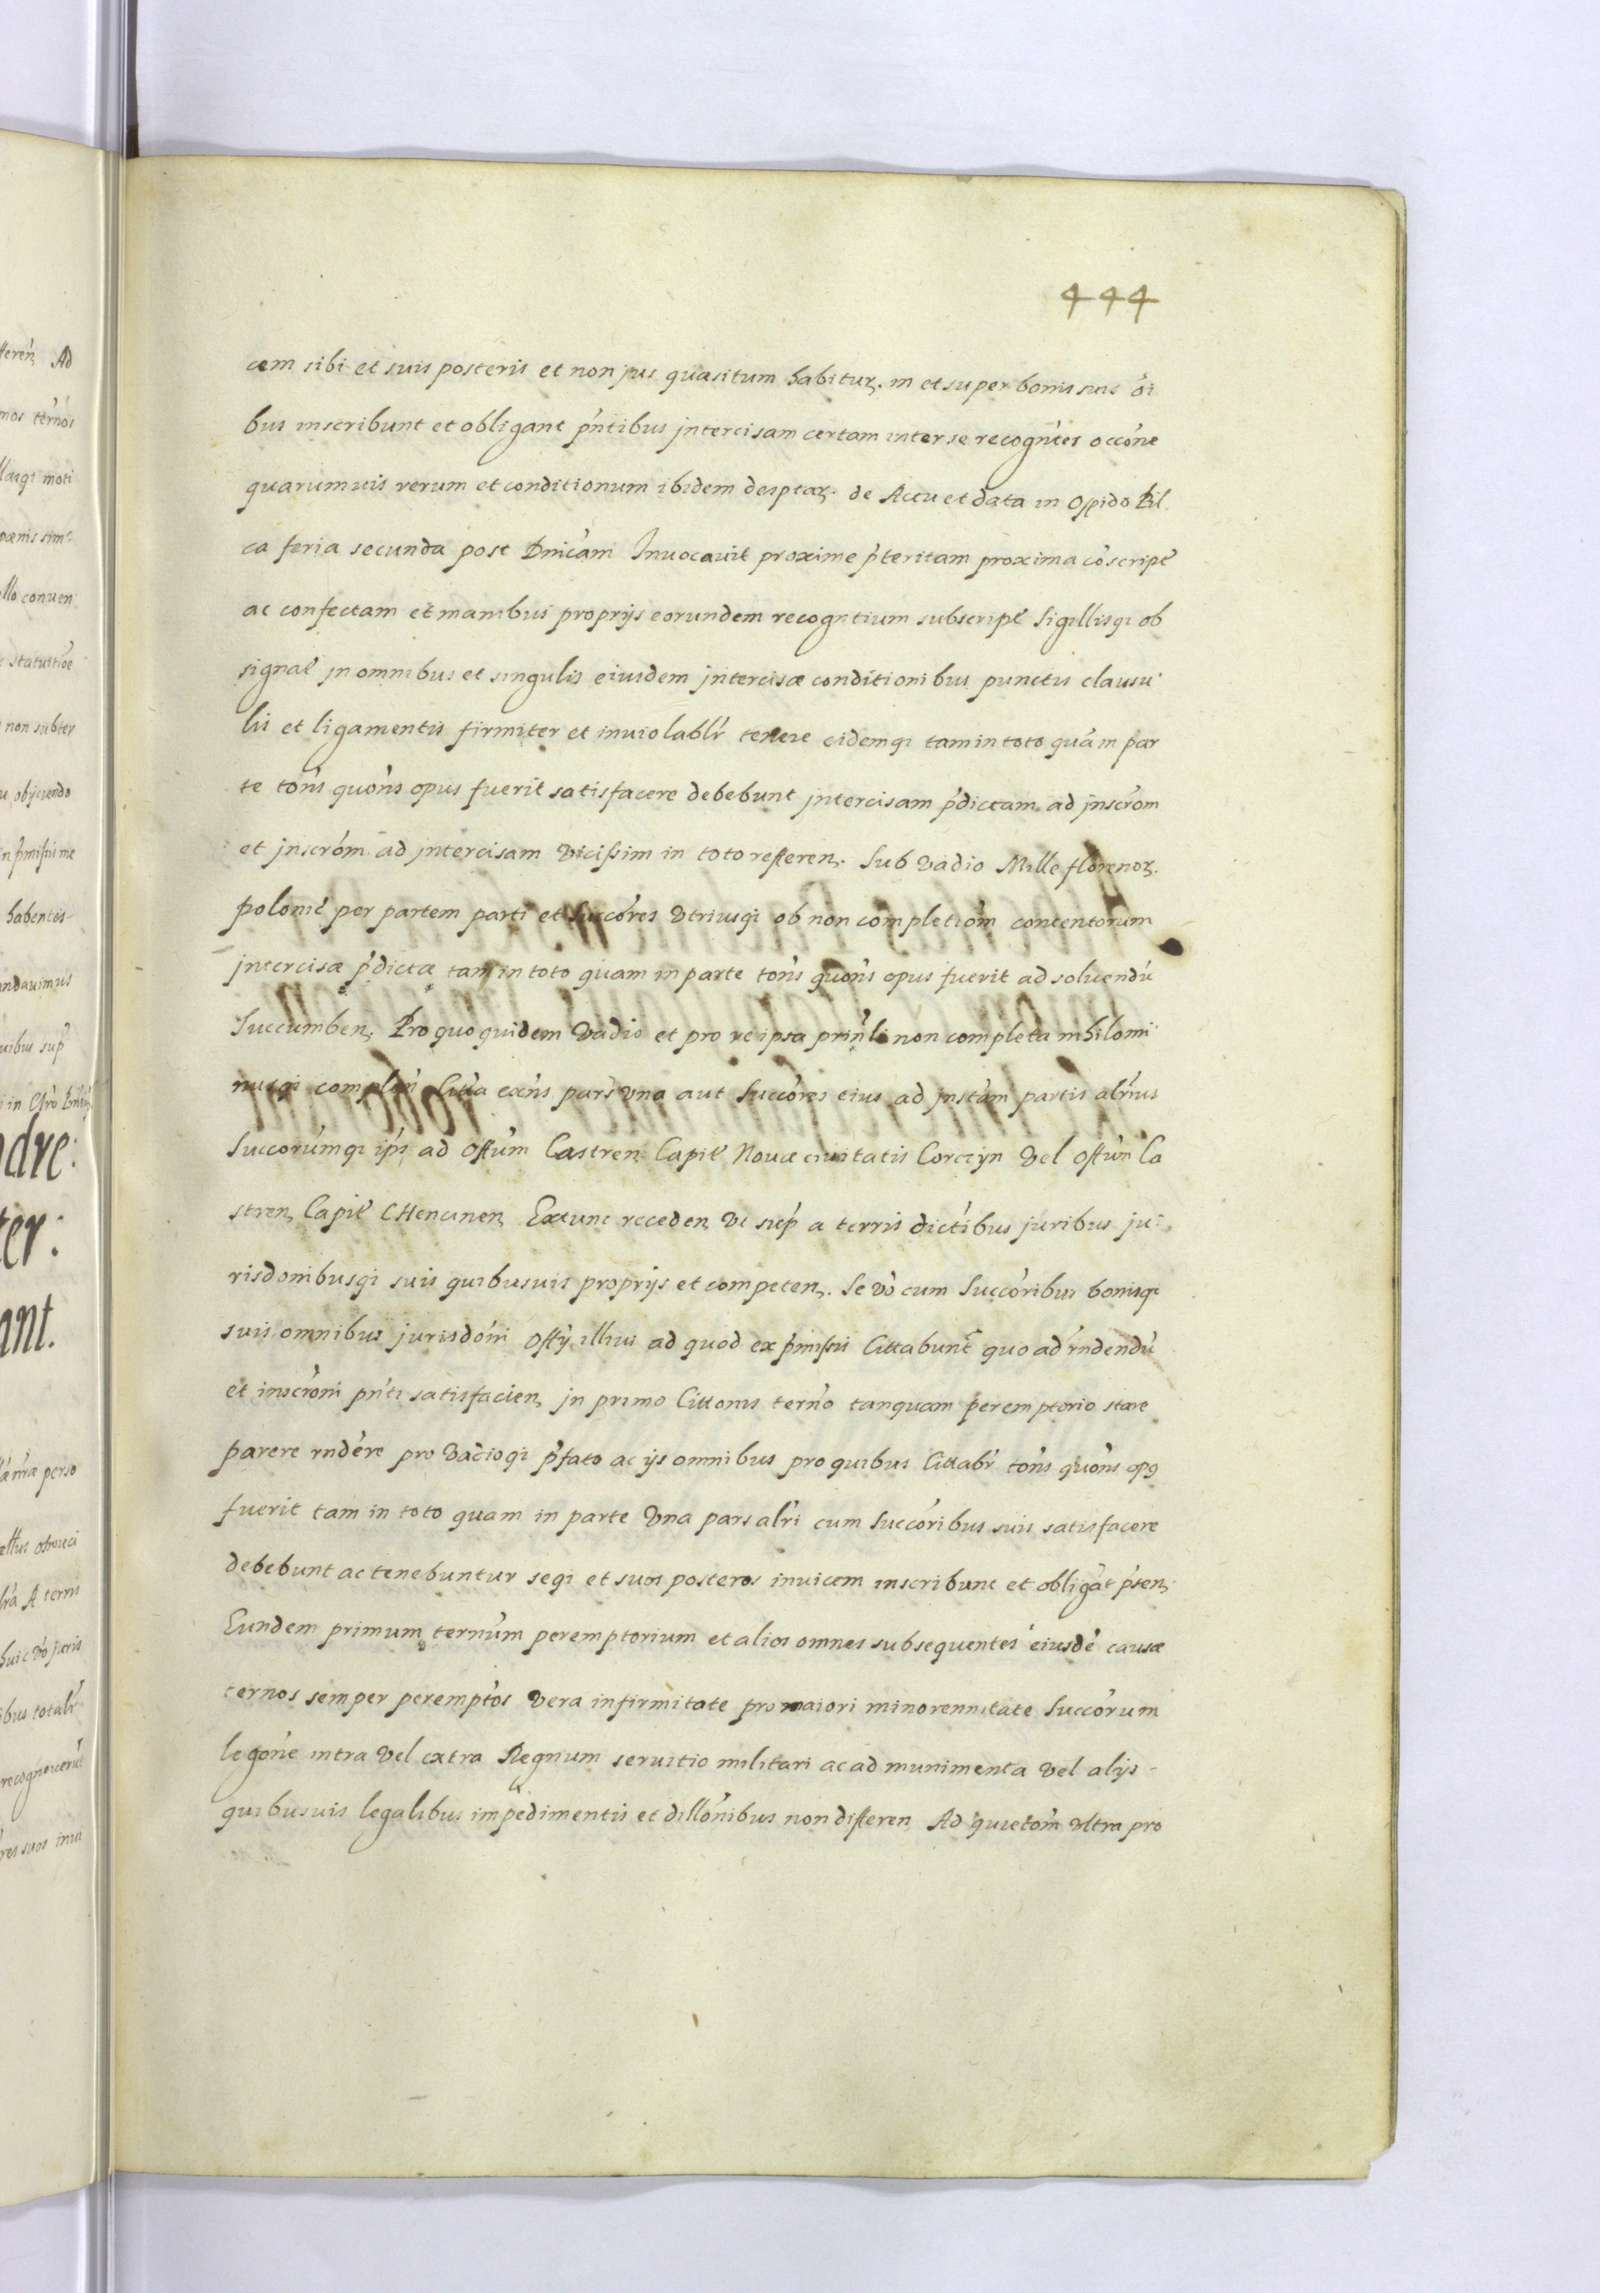 444
cem sibi et suis posteris et non jus quæsitum habitur. in et super bonis suis oi
bus inscribunt et obligant pntibus jntercisam certam inter se recogntes occone
quarumuis rerum et conditionum ibidem desptar. de Actu et data in Oppido Pil
ca feria secunda post Dnicam Inuocauit proxime pteritam proxima coscript
ac confectam et manibus proprijs eorundem recogntium subscript Sigillisqi ob
signat jn omnibus et singulis eiusdem jntercisæ conditionibus punctis clausu
lis et ligamentis firmiter et inuiolablr tenere eidemqi tam in toto quam in par
te tons quons opus fuerit satisfacere debebunt jntercisam pdictam ad jnscrom
et jnscrom ad jntercisam vicissim in toto referen. Sub vadio Mille florenor.
polonic per partem parti et Succores vtriusqi ob non completiom contentorum
jntercisæ pdictæ tam in toto quam in parte tons quons opus fuerit ad soluendu
Succumben. Pro quo quidem vadio et pro re ipsa prinli non completa nihilomi
nusqi complen Citta exns pars vna aut Succores eius ad jnstam partis altrius
Succorumqi ips ad Offum Castren Capit Nouæ ciuitatis Corczyn vel Offum Ca
stren Capit CHencinen Extunc receden vt sup a terris dictibus juribus ju
risdonibusqi suis quibusuis proprijs et competen. Se vo cum Succoribus bonisqi
suis omnibus jurisdoni Offy illius ad quod ex pmissis Cittabunt quo ad rndendu
et inscroni pnti satisfacien jn primo Cittonis terno tanquam peremptorio stare
parere rndere pro vadioqi pfato ac ijs omnibus pro quibus Cittabr tons quons opq
fuerit tam in toto quam in parte vna pars altri cum Succoribus suis satisfacere
debebunt ac tenebuntur seqi et suos posteros inuicem inscribunt et obligat psen
Eundem primum ternum peremptorium et alios omnes subsequentes eiusde causæ
ternos semper peremptos vera infirmitate pro maiori minorennitate Succorum
legone intra vel extra Regnum seruitio militari ac ad munimenta vel alijs
quibusuis legalibus impedimentis et dillonibus non differen Ad quietom vltra pro